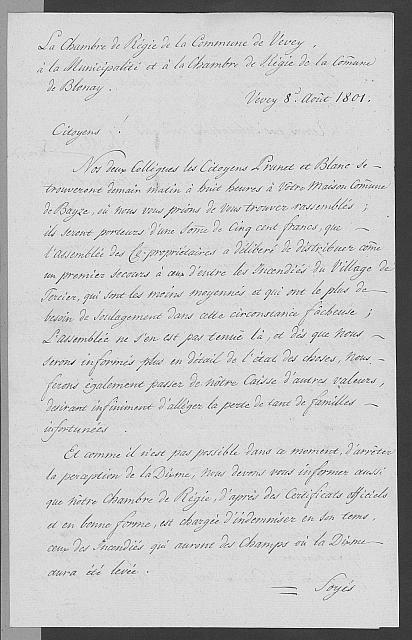 La Chambre de Régie de la Commune de Vevey,
à la Municipalité et à la Chambre de Régie de la Comune
de Blonay.
Vevey 8.e Août 1801.
Citoyens !
Nos deux Collègues les Citoyens Prunet et Blanc se
trouveront demain matin à huit heures à Votre Maison Comune
de Bayze, où nous vous prions de vous trouver rassemblés ;
ils seront porteurs d'une Some de Cinq cent francs, que
l'assemblée des Co-propriétaires a délibéré de distribuer come
un premier secours à ceux d'entre les Incendiés du Village de
Tercier, qui sont les moins moyennés et qui ont le plus de
besoin de soulagement dans cette circonstance fâcheuse ;
L'assemblée ne s'en est pas tenue là, et dès que nous
serons informés plus en détail de l'état des choses, nous
ferons également passer de nôtre Caisse d'autres valeurs,
desirant infiniment d'alléger la perte de tant de familles
infortunées.
Et comme il n'est pas possible dans ce moment, d'arrêter
la perception de la Dixme, nous devons vous informer aussi
que nôtre Chambre de Régie, d'après des Certificats officiels
et en bonne forme, est chargée d'indemniser en son tems,
ceux des Incendiés qui auront des Champs où la Dixme
aura été levée.
Soyés